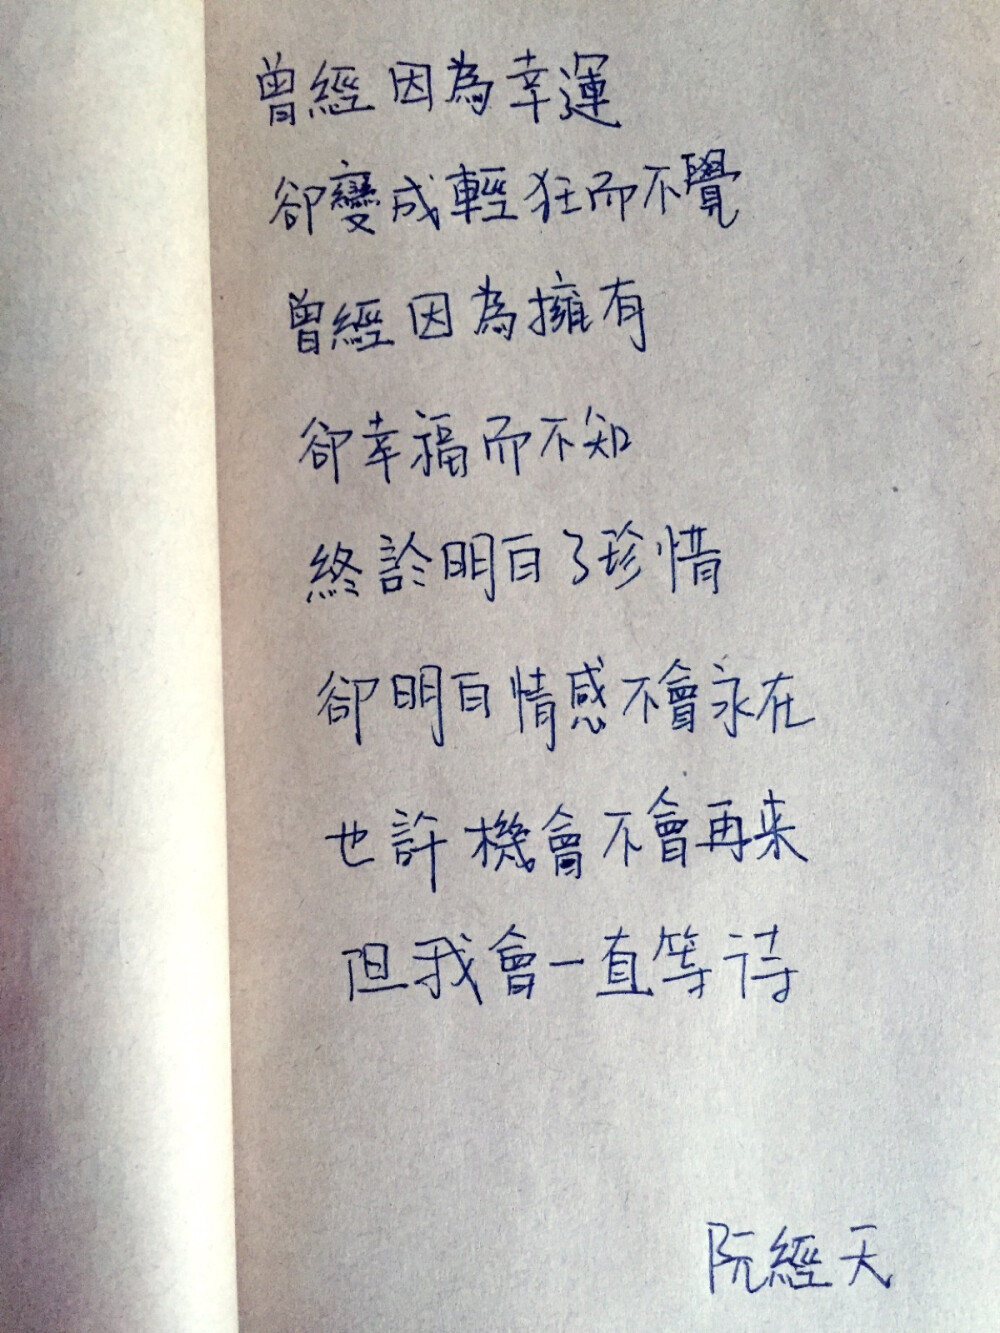 曾經因為幸運
卻變成輕狂而不覺
曾經因為擁有
卻幸福而不知
終於明白了珍惜
卻明白情感不會永在
也許機會不會再来
但我會一直等待
阮經天